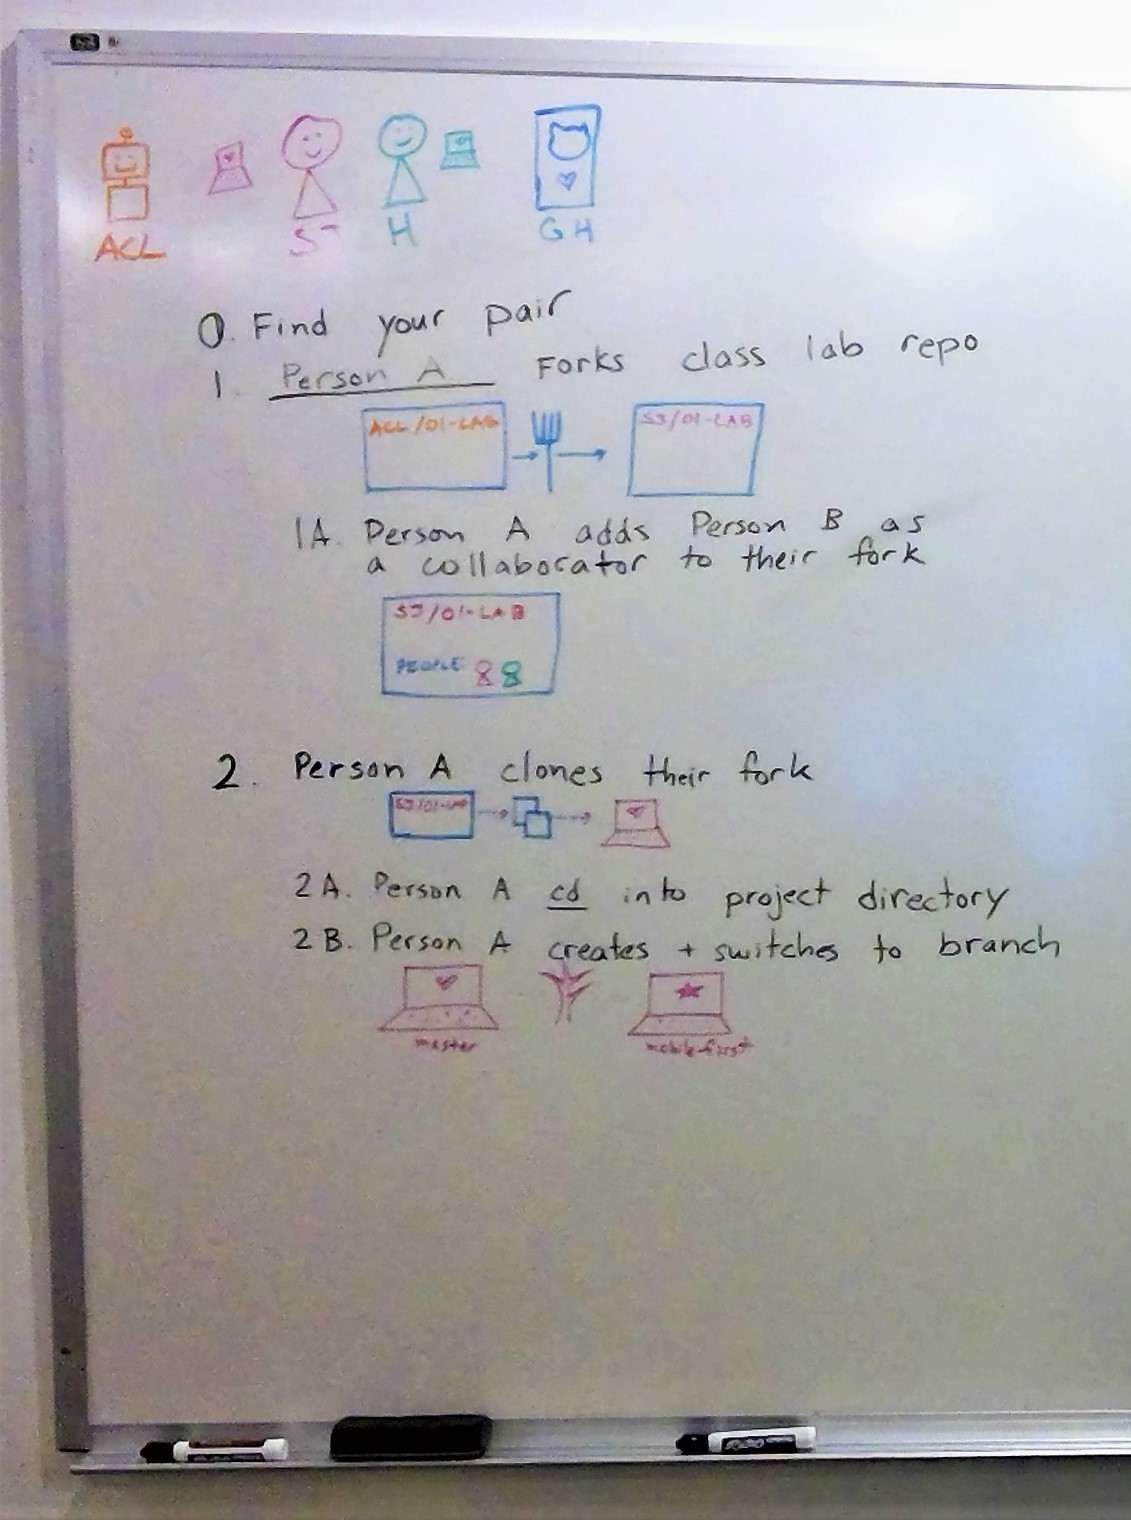 ACL SJ H GH
0. Find your pair
1. Person A Forks class lab repo
ACL/01-LAB SJ/01-LAB
1A. Person A adds Person B as
a collaborator to their fork
SJ/01-LAB
PEOPLE
2. Person A clones their fork
SJ/01-LAB
2A. Person A cd into project directory
2B. Person A creates + switches to branch
master mobile-first